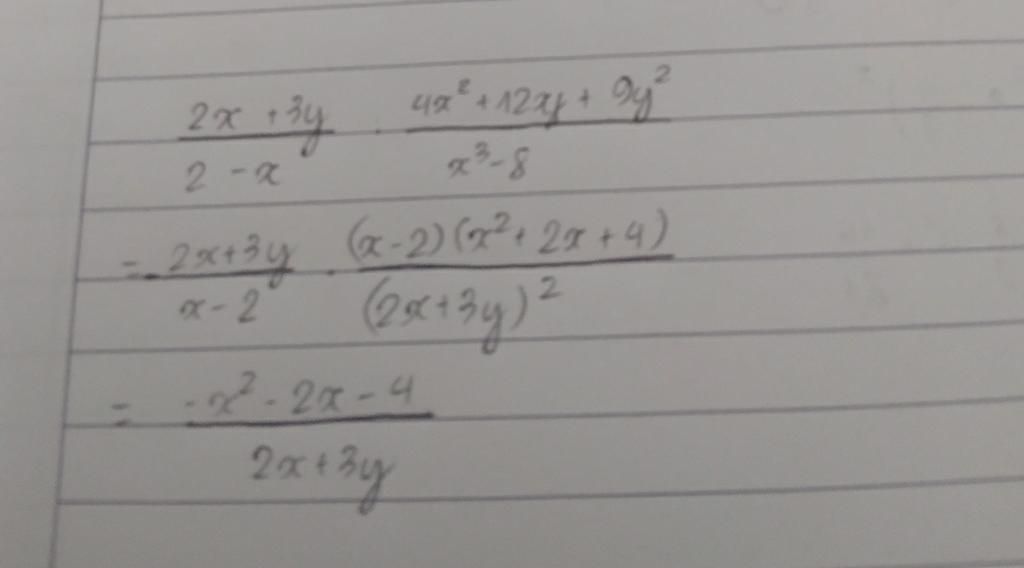 \frac{2x + 3y}{2 - x} \cdot \frac{4x^2 + 12xy + 9y^2}{x^3 - 8}
= -\frac{2x + 3y}{x - 2} \cdot \frac{(x - 2)(x^2 + 2x + 4)}{(2x + 3y)^2}
= \frac{-x^2 - 2x - 4}{2x + 3y}